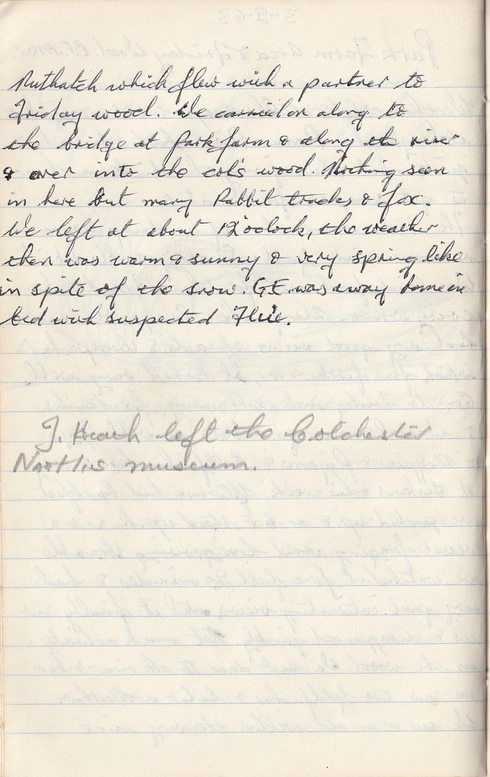 Nuthatch which flew with a partner to
Friday wood. We carried on along to
the bridge at Park farm & along the river
& over into the col's wood. Nothing seen
in here but many Rabbit tracks & fox.
We left at about 12 oclock, the weather
then was warm & sunny & very spring like
in spite of the snow. GE was away home in
bed with suspected Flue.
J. Heath left the Colchester
Nat His museum.